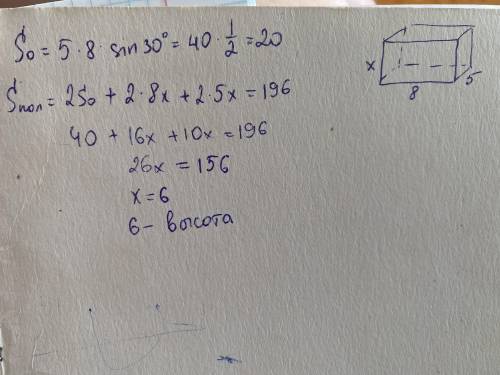 S₀ = 5 · 8 · sin 30° = 40 · 1/2 = 20
Sпол = 2S₀ + 2·8x + 2·5x = 196
40 + 16x + 10x = 196
26x = 156
x = 6
6 – высота
x
8
5